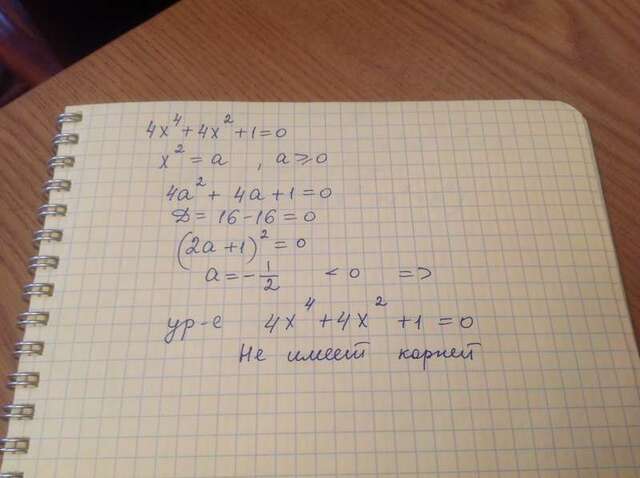 4x⁴+4x²+1=0
x²=a , a⩾0
4a²+ 4a+1=0
D= 16-16=0
(2a+1)²=0
a=-1/2 <0 =>
ур-е 4x⁴+4x²+1=0
Не имеет корней